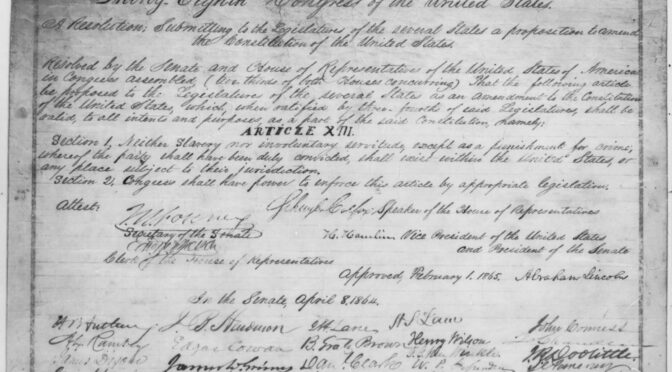 Thirty-Eighth Congress of the United States.
A Resolution; Submitting to the Legislatures of the several States a proposition to amend
the Constitution of the United States.
Resolved by the Senate and House of Representatives of the United States of America
in Congress assembled, (two thirds of both Houses concurring,) That the following article
be proposed to the Legislatures of the several States as an amendment to the Constitution
of the United States, which, when ratified by three fourths of said Legislatures, shall be
valid, to all intents and purposes, as a part of the said Constitution, namely:
ARTICLE XIII.
Section 1, Neither slavery nor involuntary servitude, except as a punishment for crime,
whereof the party shall have been duly convicted, shall exist within the United States, or
any place subject to their jurisdiction.
Section 2, Congress shall have power to enforce this article by appropriate legislation.
Attest: Speaker of the House of Representatives
Secretary of the Senate
H. Hamlin Vice President of the United States
and President of the Senate
Clerk of the House of Representatives
Approved, February 1. 1865. Abraham Lincoln
In the Senate, April 8, 1864.
J. B. Henderson H S Lane John Conness
Edgar Cowan B. Gratz Brown Henry Wilson
James Dan. Clark W. P. J R Doolittle